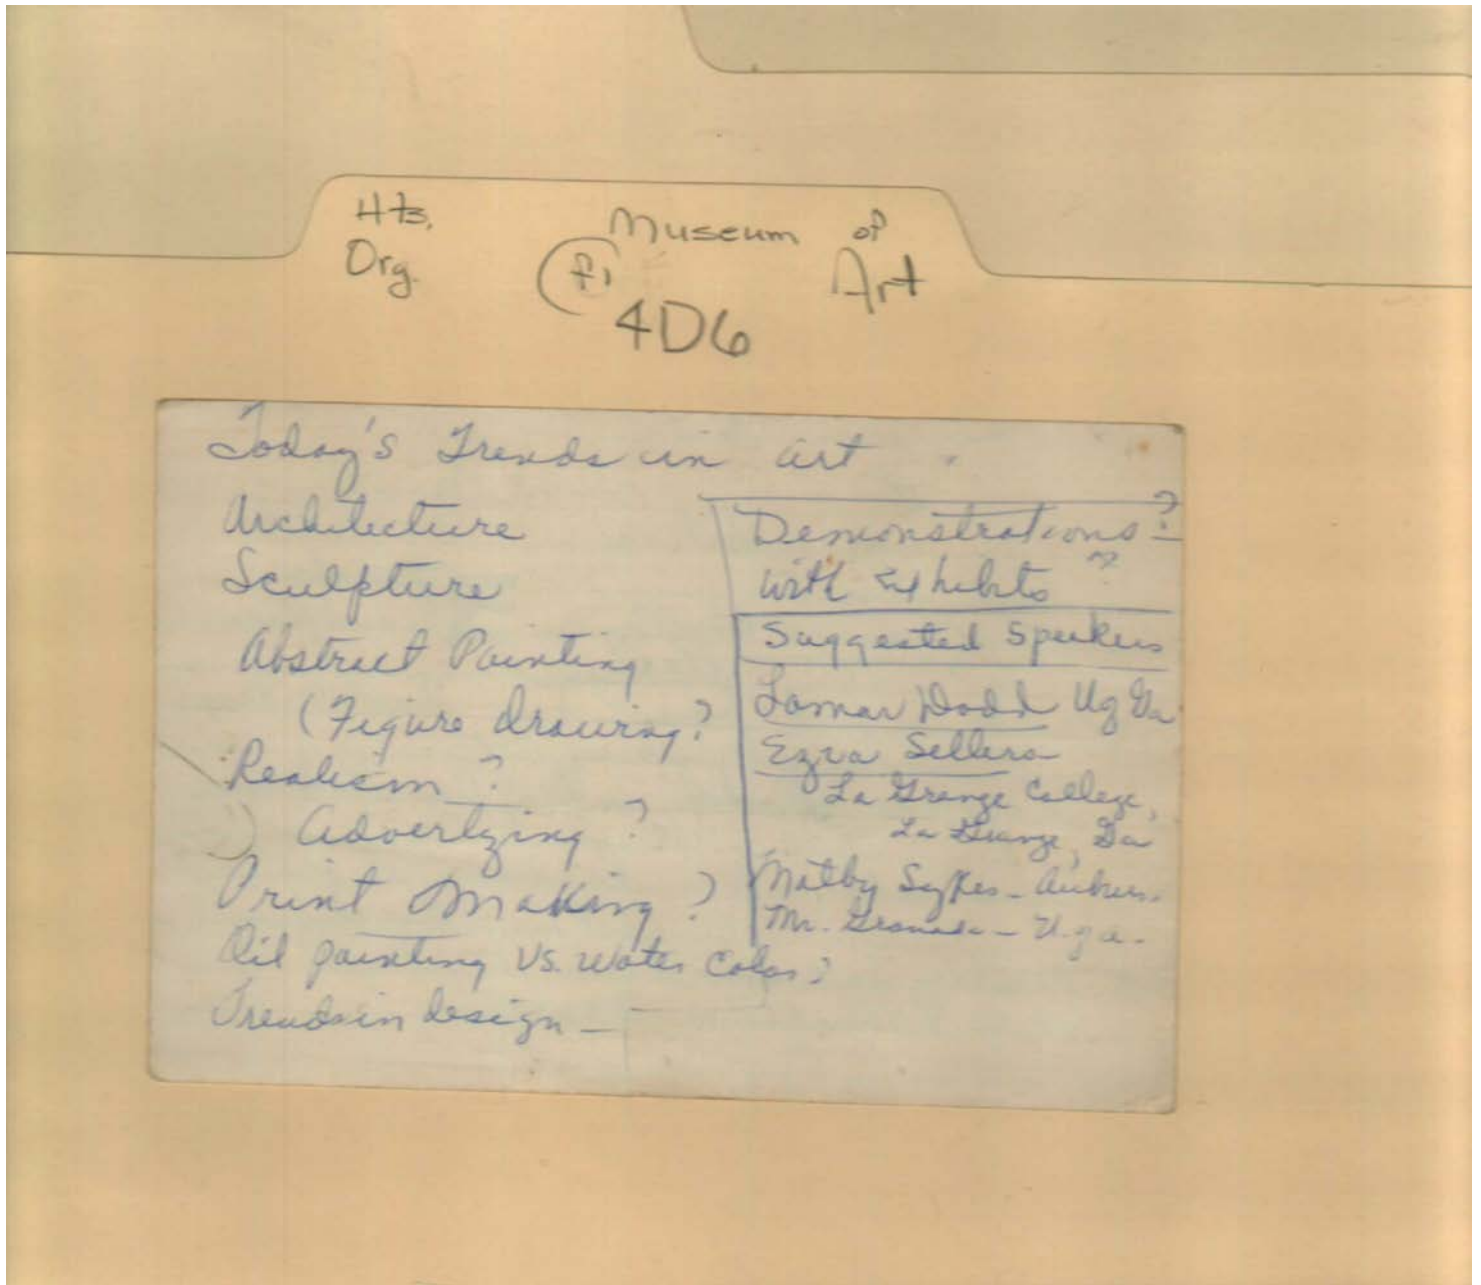 Hts. Museum of
Org. Art
4D6
Today's Trends in art
Architecture
Sculpture
Abstract Painting
(Figure drawing?
Realism?
Advertizing?
Print Making?
Oil painting vs. water color?
Trends in design —
Demonstrations?
with Exhibits?
Suggested Speakers
Lamar Dodd U g Ga
Ezra Sellers
La Grange College,
La Grange, Ga
Maltby Sykes - Auburn.
Mr. - U.g.a.